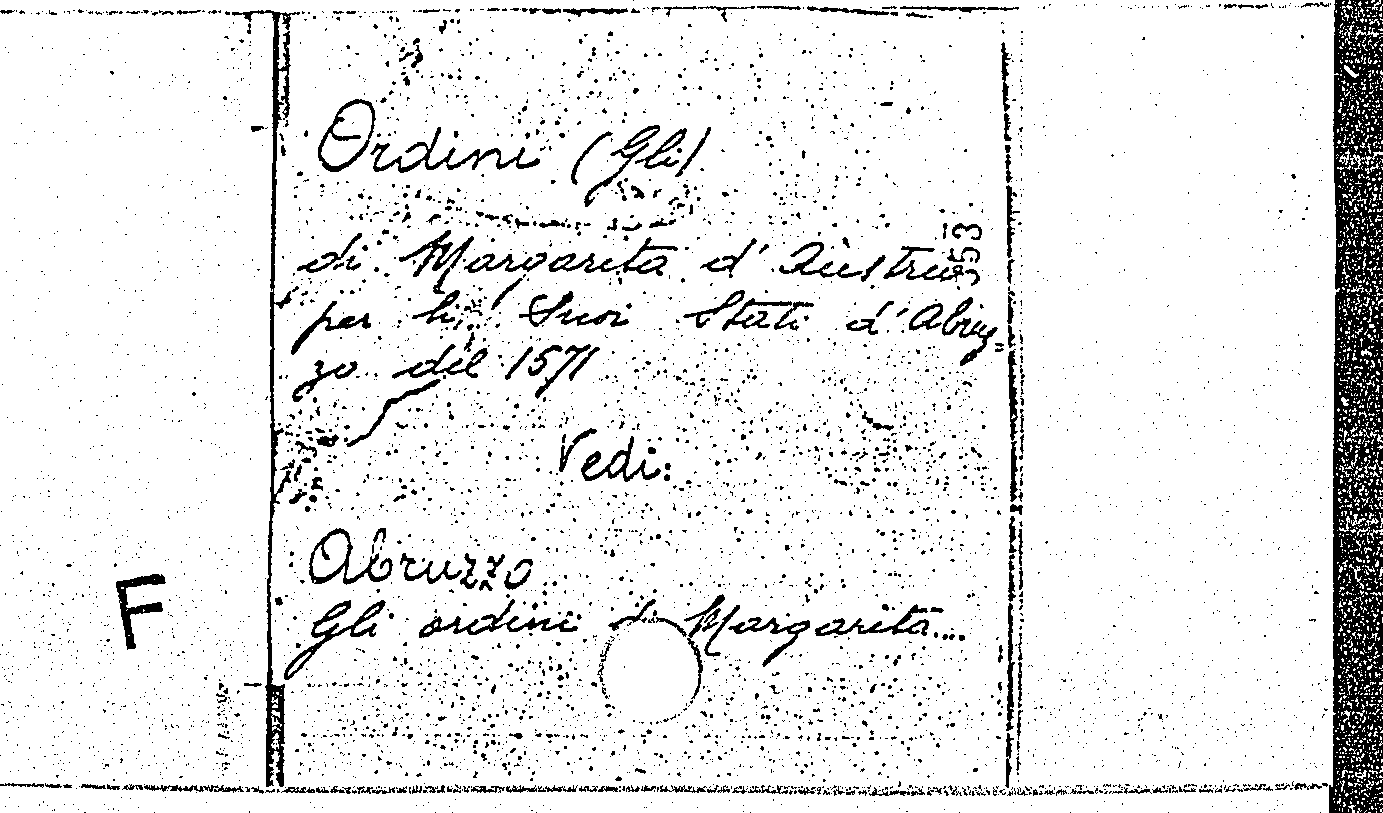 Ordini (Gli)
353
di Margarita d'Austria
per li Suoi Stati d'Abruz=
zo del 1571
Vedi:
Abruzzo
F
Gli ordini di Margarita....